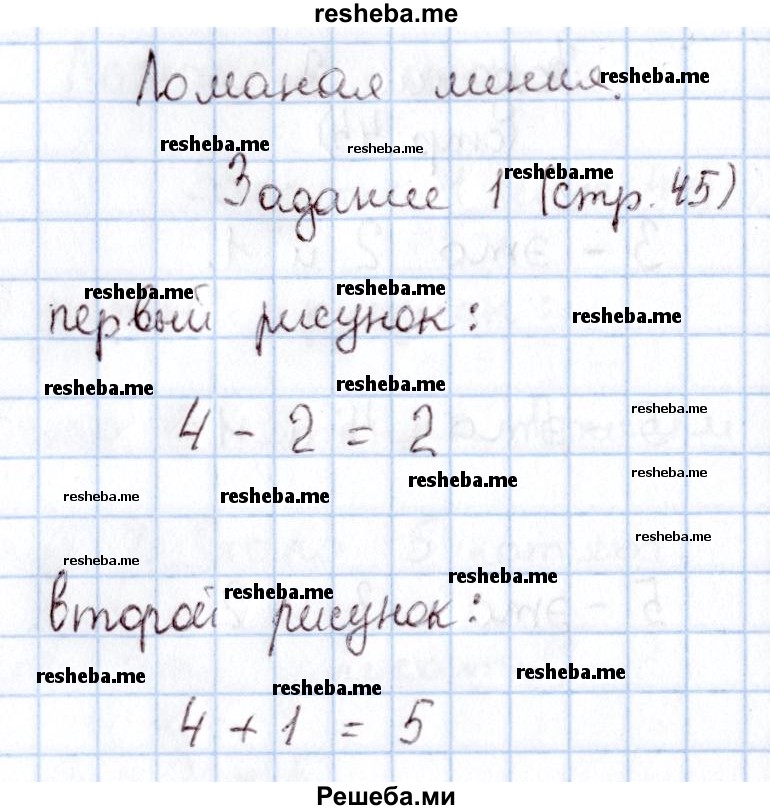 resheba.me
Ломаная линия.
resheba.me
resheba.me
resheba.me
Задание 1 (стр. 45)
resheba.me
resheba.me
resheba.me
первый рисунок:
resheba.me
resheba.me
resheba.me
resheba.me
4 - 2 = 2
resheba.me
resheba.me
resheba.me
resheba.me
resheba.me
resheba.me
resheba.me
resheba.me
второй рисунок:
resheba.me
resheba.me
resheba.me
4 + 1 = 5
Решеба.ми